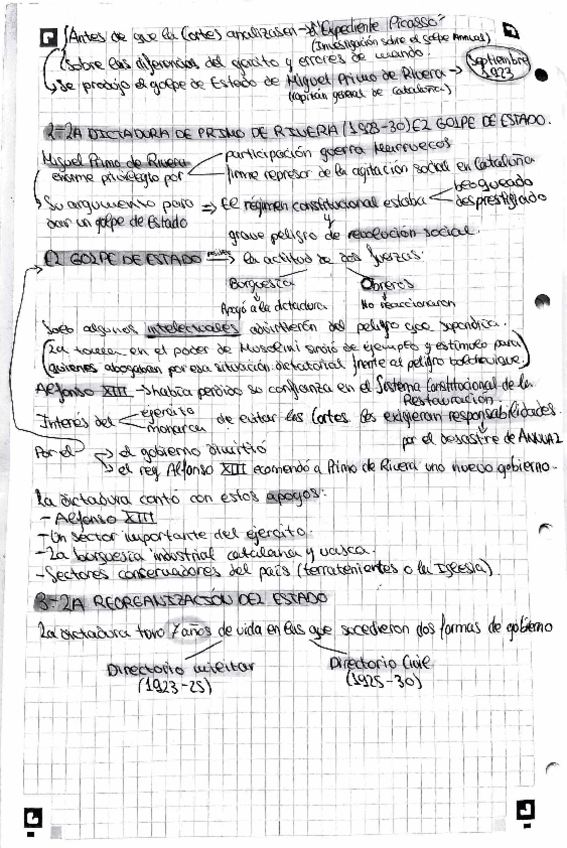 Antes de que las Cortes analizasen → "Expediente Picasso"
(Investigación sobre el golpe Annual)
Sobre las diferencias del ejército y errores de mando.
Se produjo el golpe de Estado de Miguel Primo de Rivera → Septiembre 1923
(capitán general de Cataluña)
2-LA DICTADURA DE PRIMO DE RIVERA (1923-30) EL GOLPE DE ESTADO.
Miguel Primo de Rivera participación guerra Marruecos
enorme privilegio por firme represor de la agitación social en Cataluña
Su argumento para dar un golpe de Estado ⇒ El régimen constitucional estaba bloqueado
desprestigiado
y
grave peligro de revolución social.
EL GOLPE DE ESTADO → la actitud de dos fuerzas:
Burguesía Obreros
Apoyó a la dictadura No reaccionaron
Solo algunos intelectuales advirtieron del peligro que supondría.
(La toma en el poder de Musolini sirvió de ejemplo y estímulo para
quienes abogaban por esa situación dictatorial frente al peligro bolchevique.)
Alfonso XIII → había perdido su confianza en el Sistema Constitucional de la
Restauración.
Interés del ejército
monarca de evitar las Cortes les exigieran responsabilidades.
por el desastre de ANNUAL
Por el → el gobierno dimitió
→ el rey Alfonso XIII ecomendó a Primo de Rivera uno nuevo gobierno.
La dictadura contó con estos apoyos:
- Alfonso XIII
- Un sector importante del ejército.
- La burguesía industrial catalana y vasca.
- Sectores conservadores del país (terratenientes o la Iglesia)
3-LA REORGANIZACIÓN DEL ESTADO
La dictadura tuvo 7 años de vida en las que sucedieron dos formas de gobierno
Directorio militar Directorio Civil
(1923-25) (1925-30)